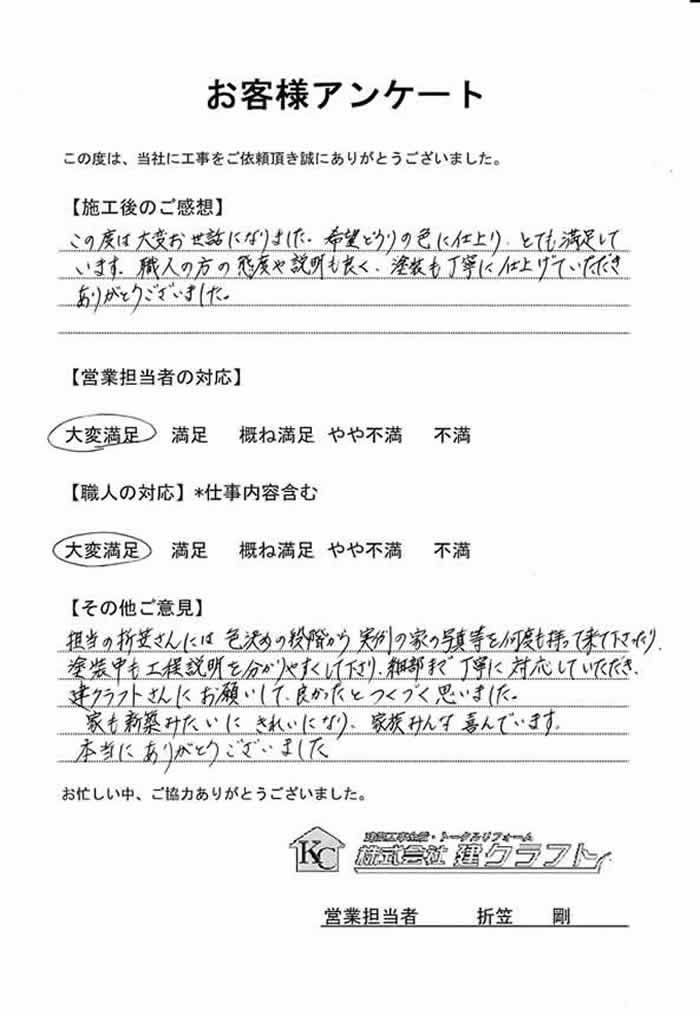 お客様アンケート
この度は、当社に工事をご依頼頂き誠にありがとうございました。
【施工後のご感想】
この度は大変お世話になりました。希望どうりの色に仕上り、とても満足して
います。職人の方の態度や説明も良く、塗装も丁寧に仕上げていただき
ありがとうございました。
【営業担当者の対応】
大変満足 満足 概ね満足 やや不満 不満
【職人の対応】*仕事内容含む
大変満足 満足 概ね満足 やや不満 不満
【その他ご意見】
担当の折笠さんには色決めの段階から実例の家の写真等を何度も持って来て下さったり、
塗装中も工程説明を分かりやすくして下さり、細部まで丁寧に対応していただき、
建クラフトさんにお願いして良かったとつくづく思いました。
家も新築みたいにきれいになり、家族みんな喜んでいます。
本当にありがとうございました
お忙しい中、ご協力ありがとうございました。
KC
建築工事全般・トータルリフォーム
株式会社 建クラフト
営業担当者 折笠 剛